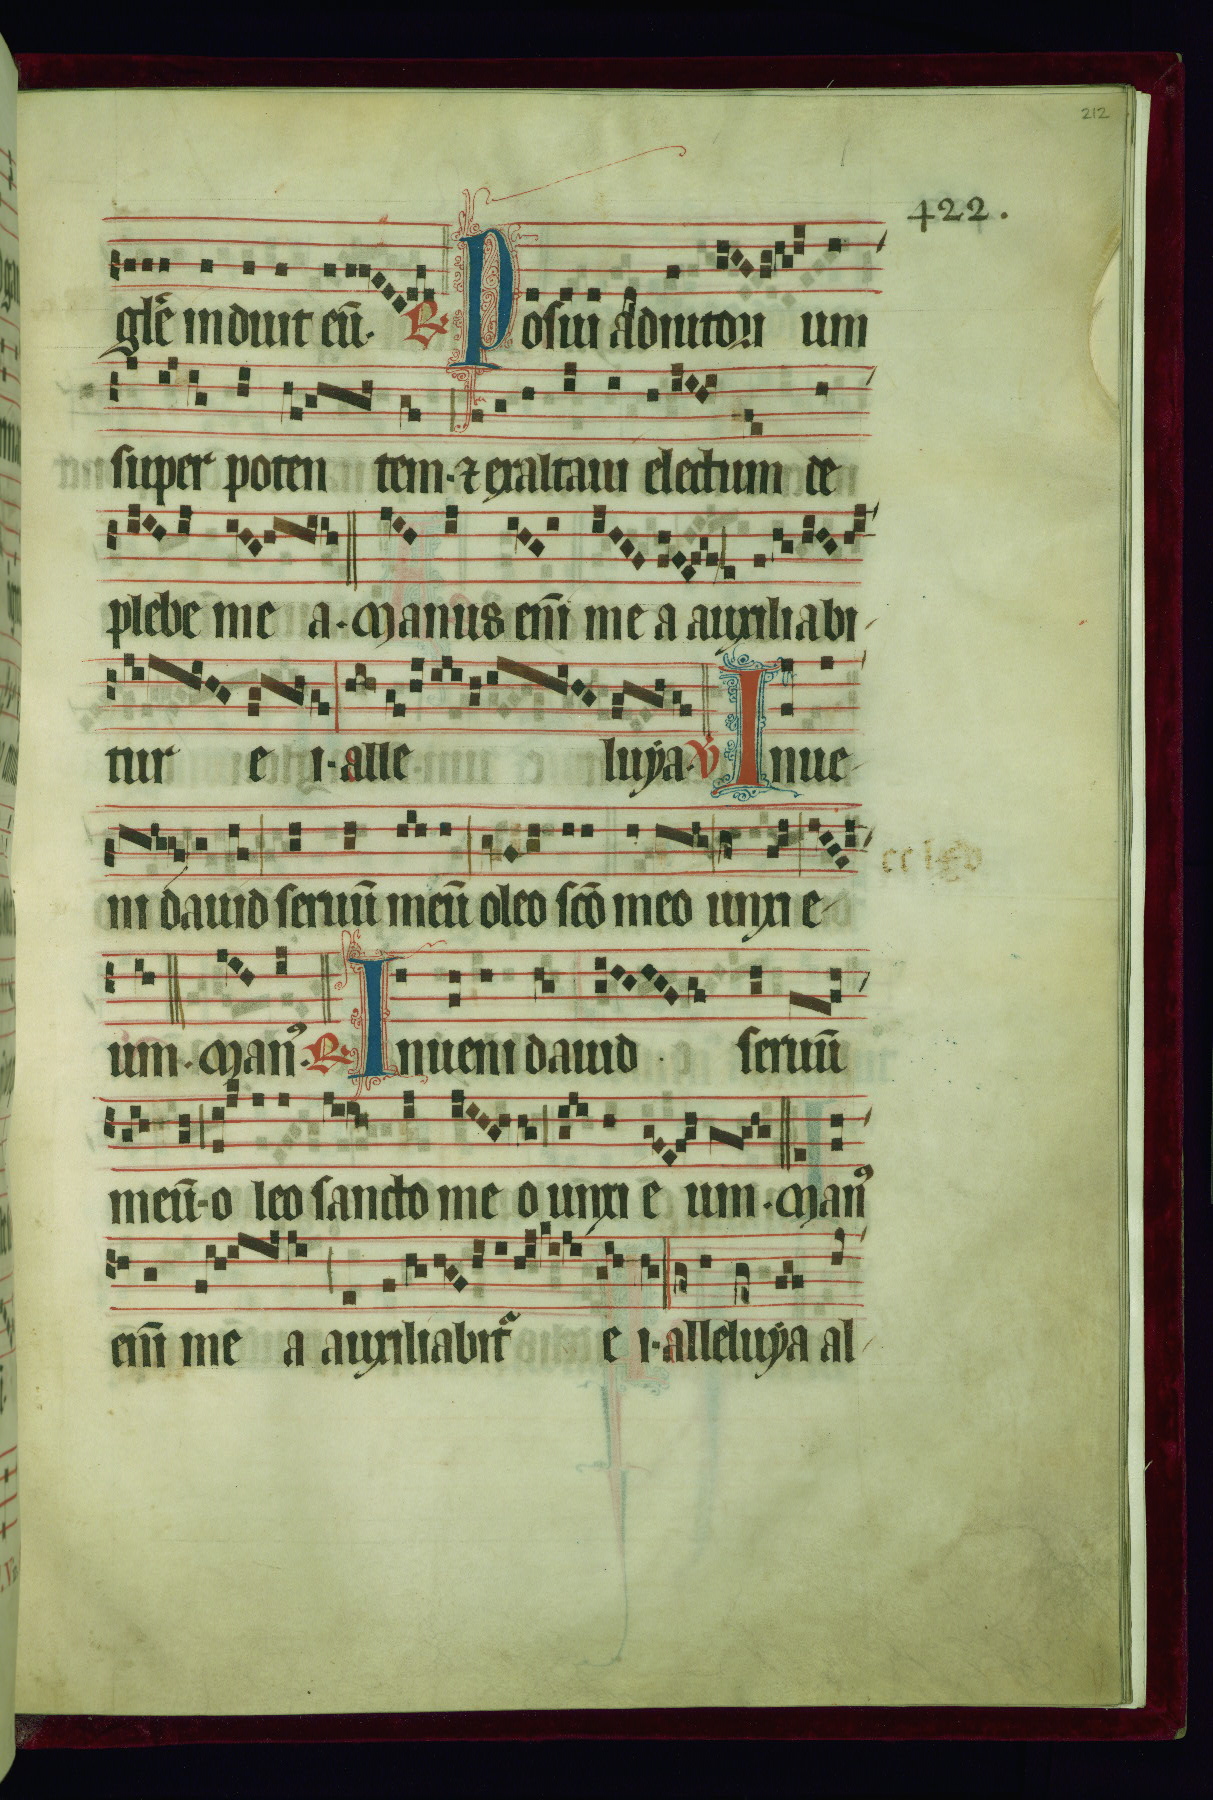 212
422.
glē induit eū. R. Posui adiutori um
super poten tem. ⁊ exaltaui electum de
plebe me a. Manus eni me a auxiliabi
tur e i. alle luya. V Inue
ni dauid seruū meū oleo scō meo unxi e
um. Man9. R. Inueni dauid seruū
meū. o leo sancto me o unxi e um. Man9
eni me a auxiliabit e i. alleluya al